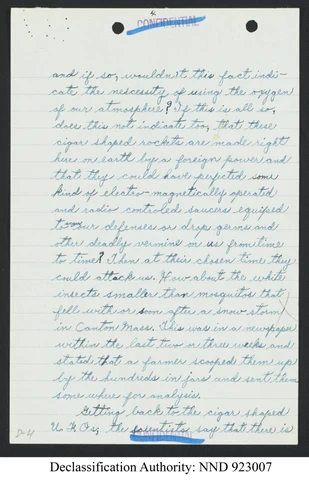 4
CONFIDENTIAL
and if so, wouldn't this fact indi-
cate the nescessity of using the oxygen
of our atmosphere? If this is all so,
does this not indicate too, that these
cigar shaped rockets are made right
here on earth by a foreign power and
that they could have perfected some
kind of electro-magnetically operated
and radio controled saucers equiped
to our defenses or drop germs and
other deadly vermine on us from time
to time? Then at their chosen time they
could attack us. How about the white
insects smaller than mosquitos that
fell with or soon after a snow storm
in Canton Mass. This was in a newspaper
within the last two or three weeks and
stated that a farmer scooped them up
by the hundreds in jars and sent them
some where for analysis.
Getting back to the cigar shaped
U.F.Os, the scientists say that there is
CONFIDENTIAL
Declassification Authority: NND 923007